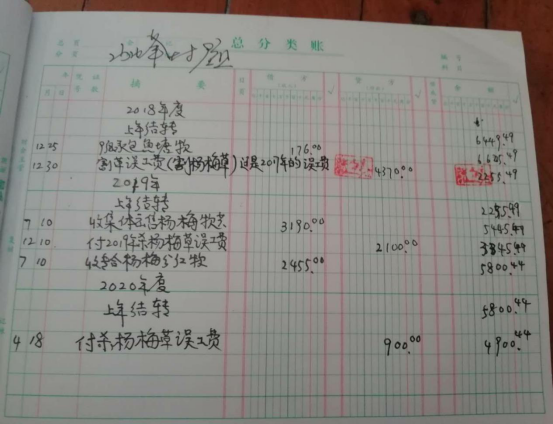 总分类账
摘要
借方
贷方
余额
2018年度
上年结转 6449.49
12 25 承包鱼塘款 176.00 6625.49
12 30 割草误工费(割杨梅草)这是2017年的误工费 4370.00 2255.49
2019年
上年结转 2255.49
7 10 收集体出售杨梅款 3190.00 5445.49
12 10 付2019年杀杨梅草误工费 2100.00 3345.44
7 10 收杨梅分红款 2455.00 5800.44
2020年度
上年结转 5800.44
4 18 付杀杨梅草误工费 900.00 4900.44